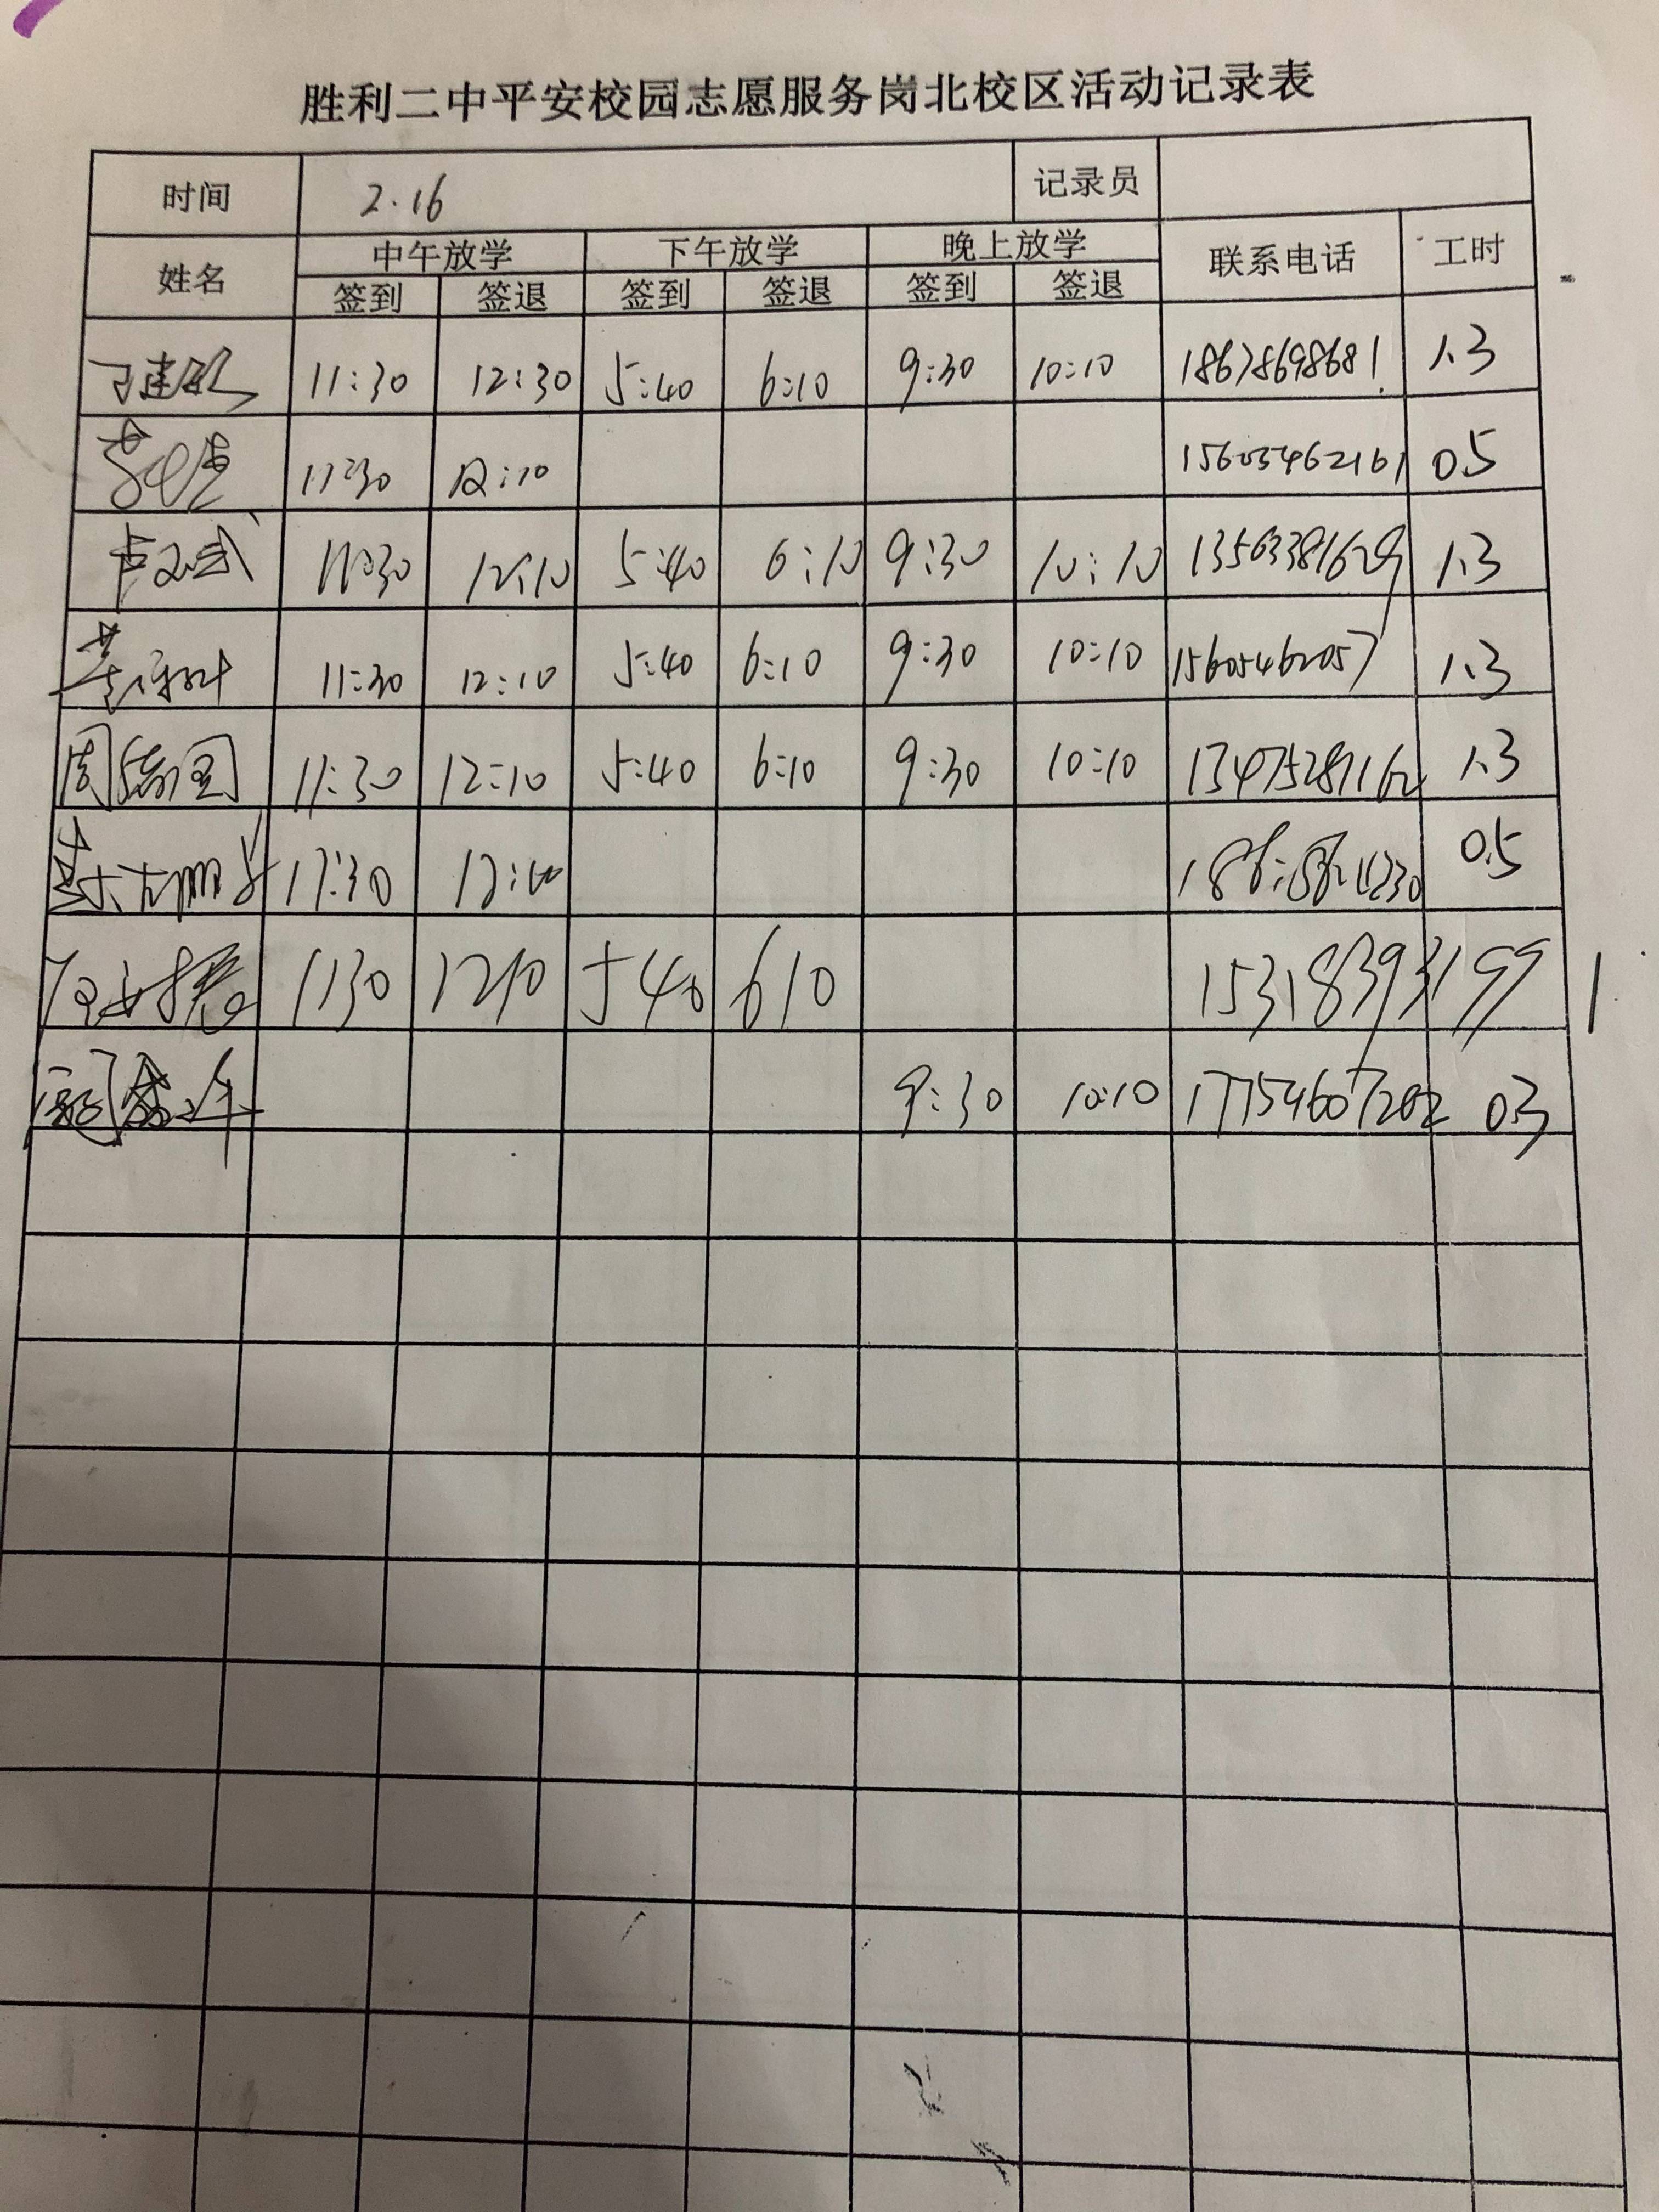 胜利二中平安校园志愿服务岗北校区活动记录表
时间 2.16 记录员
姓名 中午放学 下午放学 晚上放学 联系电话 工时
签到 签退 签到 签退 签到 签退
11:30 12:30 5:40 6:10 9:30 10:10 18678698681 1.3
11:30 12:10 15605462161 0.5
11:30 12:10 5:40 6:10 9:30 10:10 13563381629 1.3
11:30 12:10 5:40 6:10 9:30 10:10 15605462057 1.3
周 国 11:30 12:10 5:40 6:10 9:30 10:10 13475281162 1.3
11:30 12:10 0.5
1130 1210 540 610 15318393199 1
9:30 10:10 17754607202 03